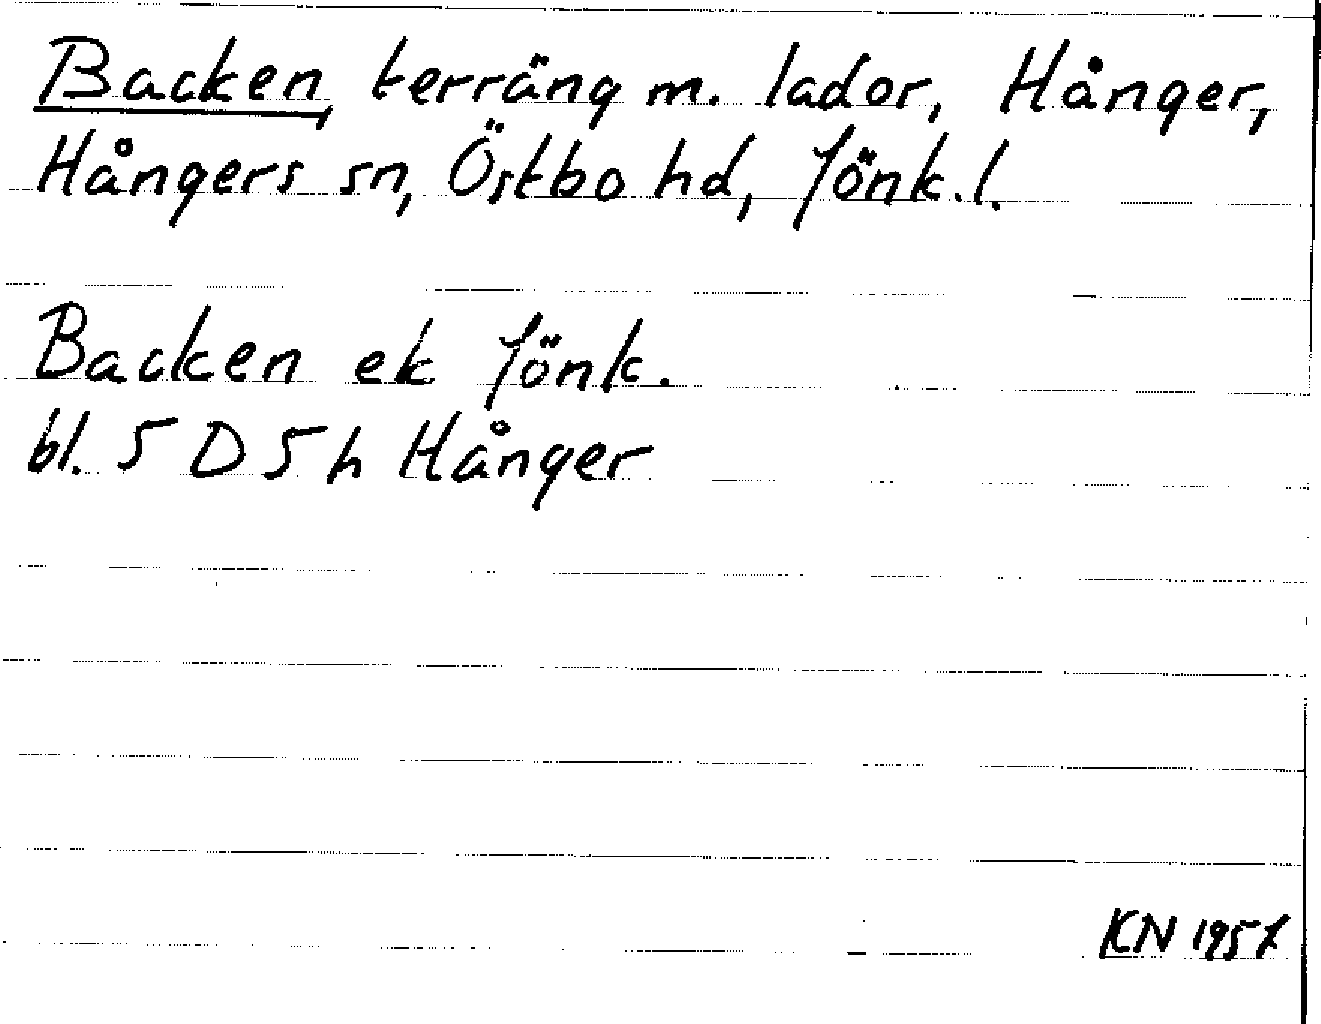 Backen, terräng m. lador, Hånger,
Hångers sn, Östbo hd, Jönk. l.
Backen ek Jönk.
bl. 5 D 5 h Hånger
KN